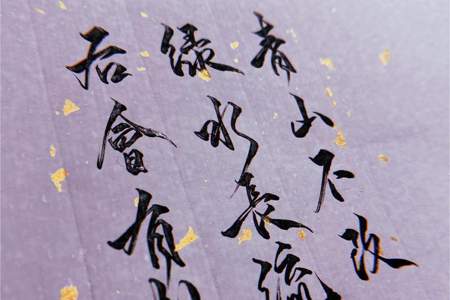 青山不改
綠水長流
后會有